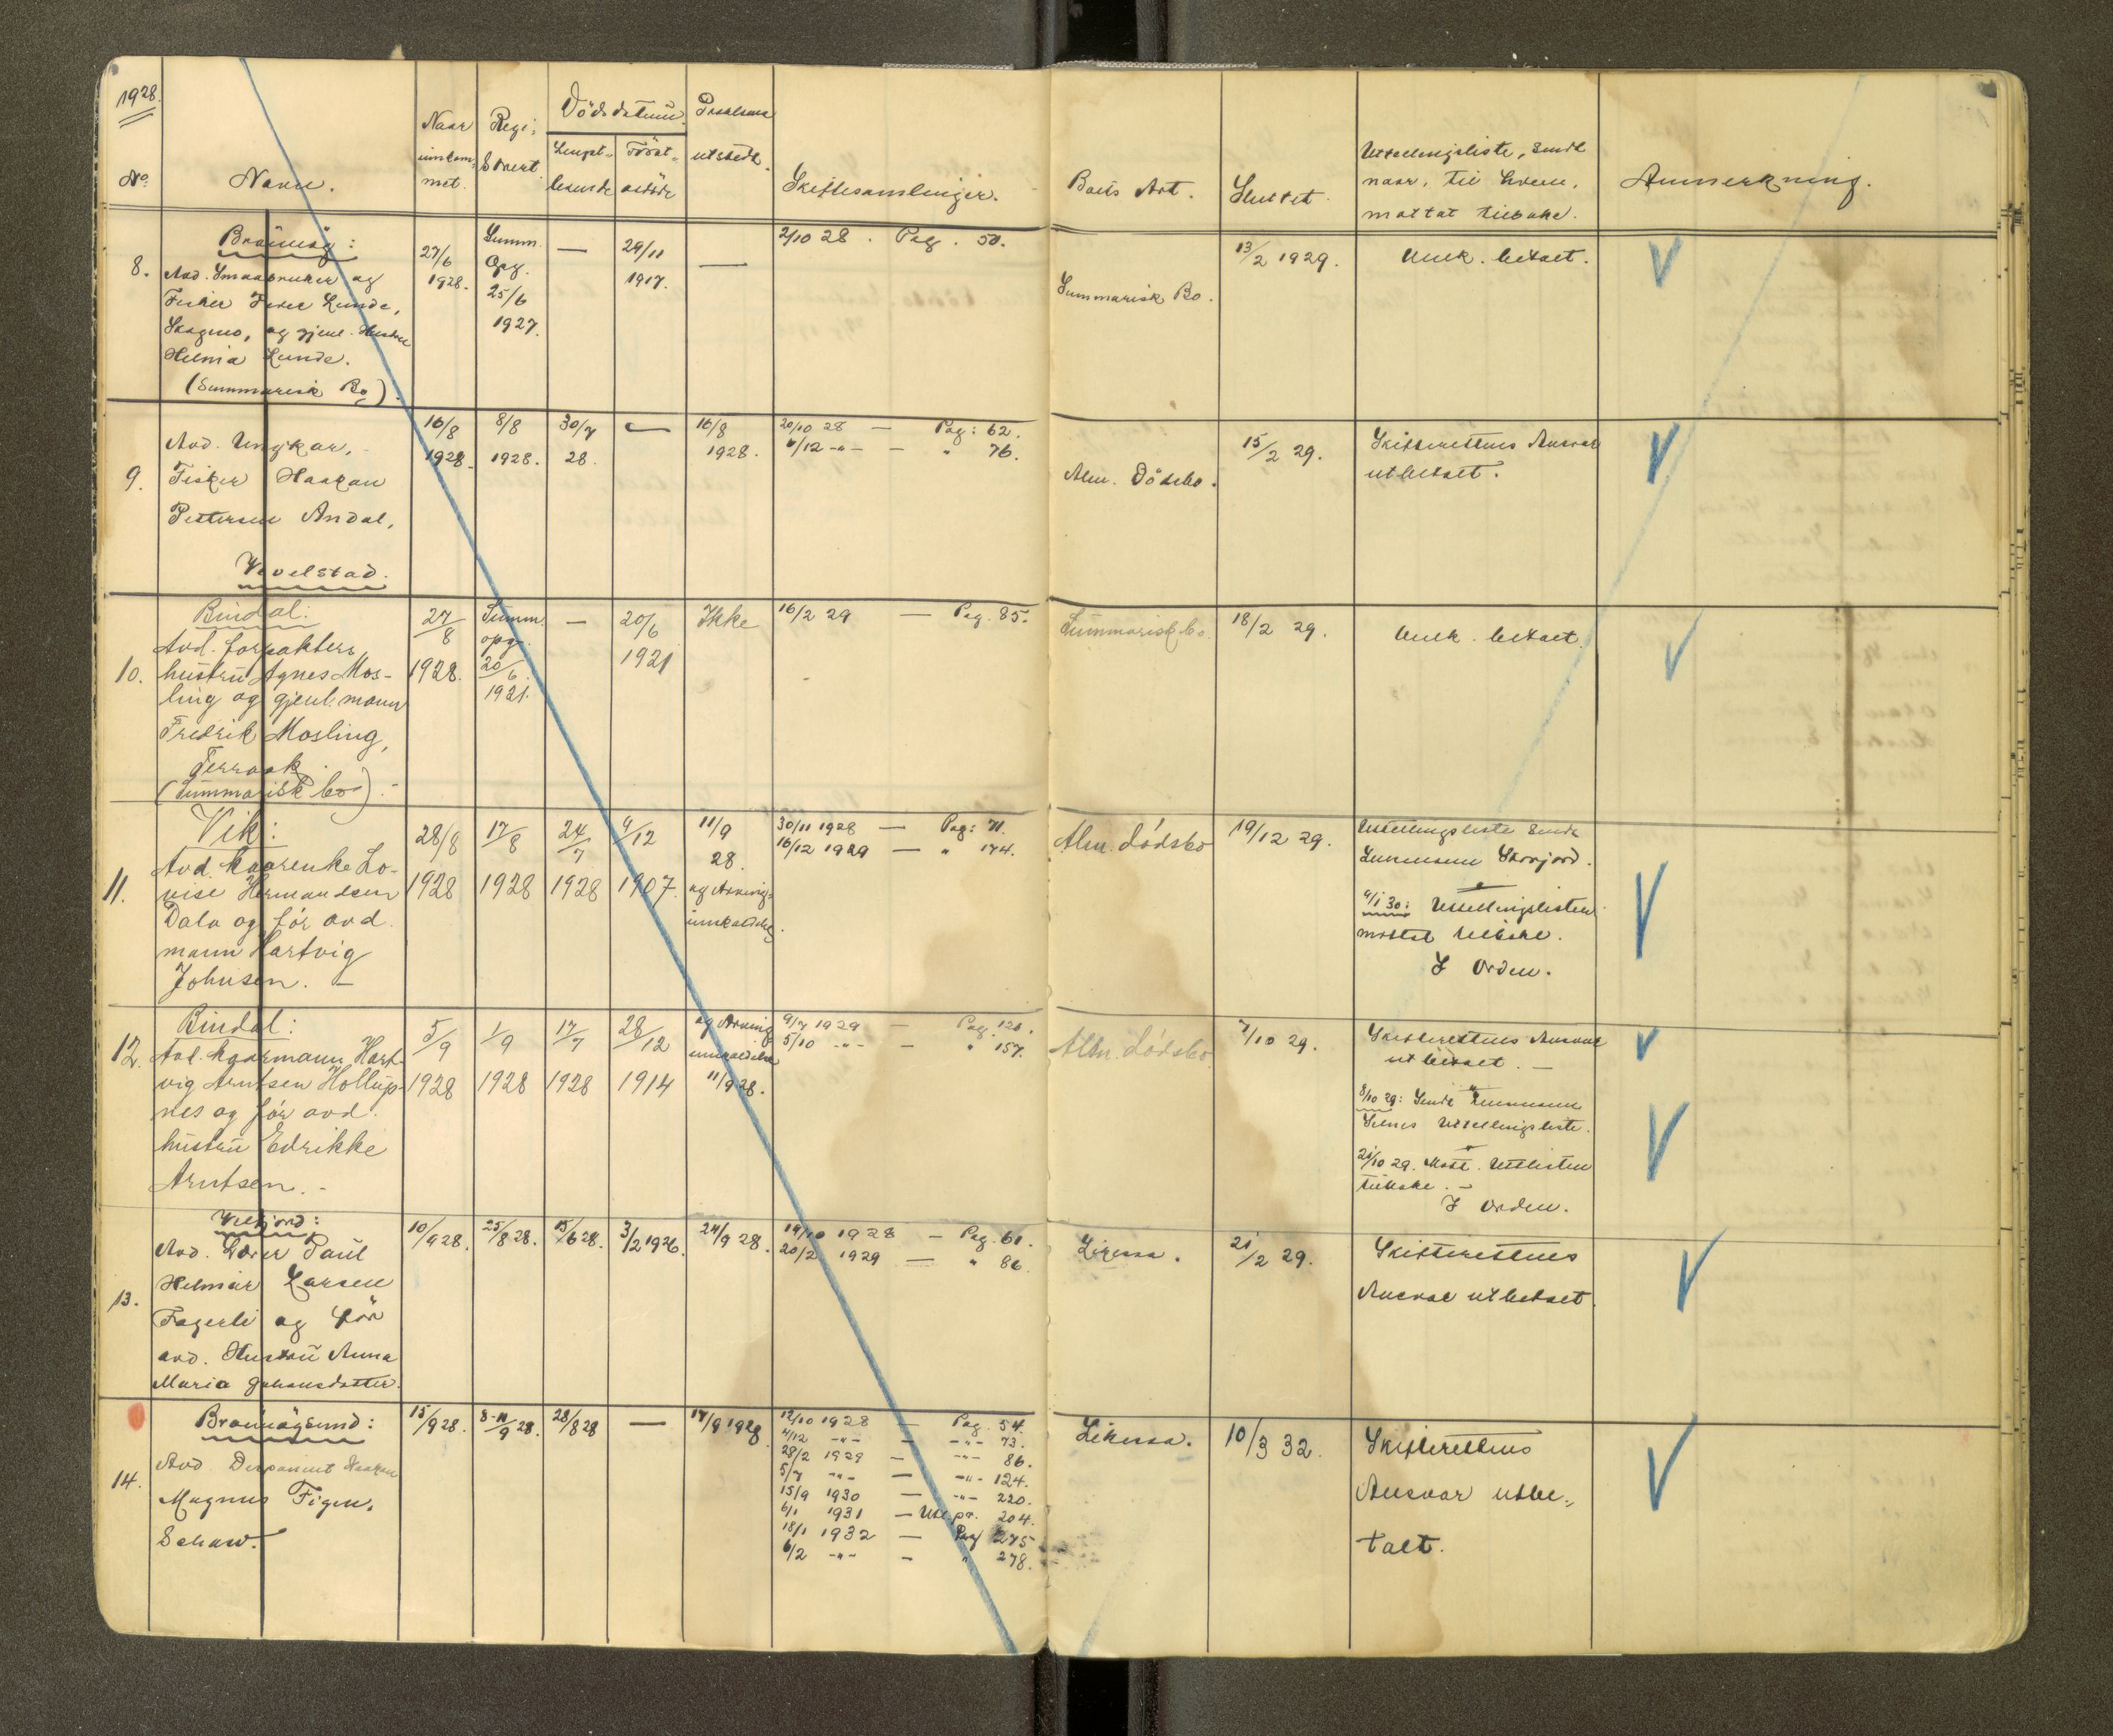 1928.
No.
Navn.
Naar
innkom-
met.
Regi-
strert.
Dödsdatum.
Lengst-
levende
Först-
avdöde
Proklama
utstedt.
Skiftesamlinger.
Boets Art.
Sluttet.
Utstellingsliste, sendt
naar, til hvem,
mottat tilbake.
Anmerkning.
8.
Brönnöy:
Avd. Smaabruker og
Fisker Peder Lunde,
Skogmo, og gjenl. Hustru
Helmia Lunde.
(Summarisk Bo).
27/6
1928.
Summ.
Opg.
25/6
1927.
—
29/11
1917.
—
2/10 28. Pag. 50.
Summarisk Bo.
13/2 1929.
betalt.
9.
Avd. Ungkar,
Fisker Haakan
Pettersen Andal,
Vevelstad.
16/8
1928.
8/8
1928.
30/7
28.
—
16/8
1928.
20/10 28 — Pag: 62.
4/12 -"- — " 76.
Alm. Dödsbo.
15/2 29.
Skifterettens Ansvar
utbetalt.
10.
Bindal:
Avd. forpakters
hustru Agnes Mos-
ling og gjenl. mann
Fredrik Mosling,
Terraak.
(Summarisk bo).-
27/8
1928.
Summ.
opg.
20/6
1921.
—
20/6
1921
Ikke
16/2 29 — Pag. 85.
Summarisk bo.
18/2 29.
betalt.
11.
Vik:
Avd. Kaarenke Lo-
vise Hermandsen
Dala og för avd.
mann Hartvig
Johnsen. —
28/8
1928
17/8
1928
24/7
1928
9/12
1907.
11/9
28.
og Arving-
innkaldelse.
30/11 1928 — Pag: 71.
16/12 1929 — " 174.
Alm. dödsbo
19/12 29.
Utstellingsliste sendt
Lensmann Storjord.
9/1 30: Utstellingslisten
mottat tilbake.
I Orden.
12.
Bindal:
Avd. Kaarmann Hart-
vig Arntsen Hollup-
nes og för avd.
hustru Edrikke
Arntsen. -
5/9
1928
1/9
1928
17/7
1928
28/12
1914
og Arving
innkaldelse
11/9 28.
9/7 1929 — Pag. 126.
5/10 -"- — " 157.
Alm. dödsbo
7/10 29.
Skifterettens Ansvar
utbetalt. —
8/10 29: Sendt Lensmann
Utstellingsliste.
21/10 29. Mott. Utst.listen
tilbake. —
I Orden.
13.
Velfjord:
Avd. Lærer Paul
Helmar Larsen
Fagerli og för
avd. Hustru Anna
Maria Johansdatter.
10/9 28.
25/8 28.
15/6 28.
3/2 1926.
24/9 28.
19/10 1928 — Pag. 61.
20/2 1929 — " 86.
Likessa.
21/2 29.
Skifterettens
Ansvar utbetalt.
14.
Brönnöysund:
Avd. Disponent Haakan
Magnus Figen-
Schaw.
15/9 28.
8-11/9 28.
28/8 28
—
17/9 1928.
12/10 1928 — Pag. 54.
4/12 -"- — -"- 73.
28/2 1929 — -"- 86.
5/7 -"- — -"- 124.
15/9 1930 — -"- 220.
6/1 1931 — Utl.pr. 204.
18/1 1932 — Pag 275
6/2 -"- — " 278.
Likessa.
10/3 32.
Skifterettens
Ansvar utbe-
talt.